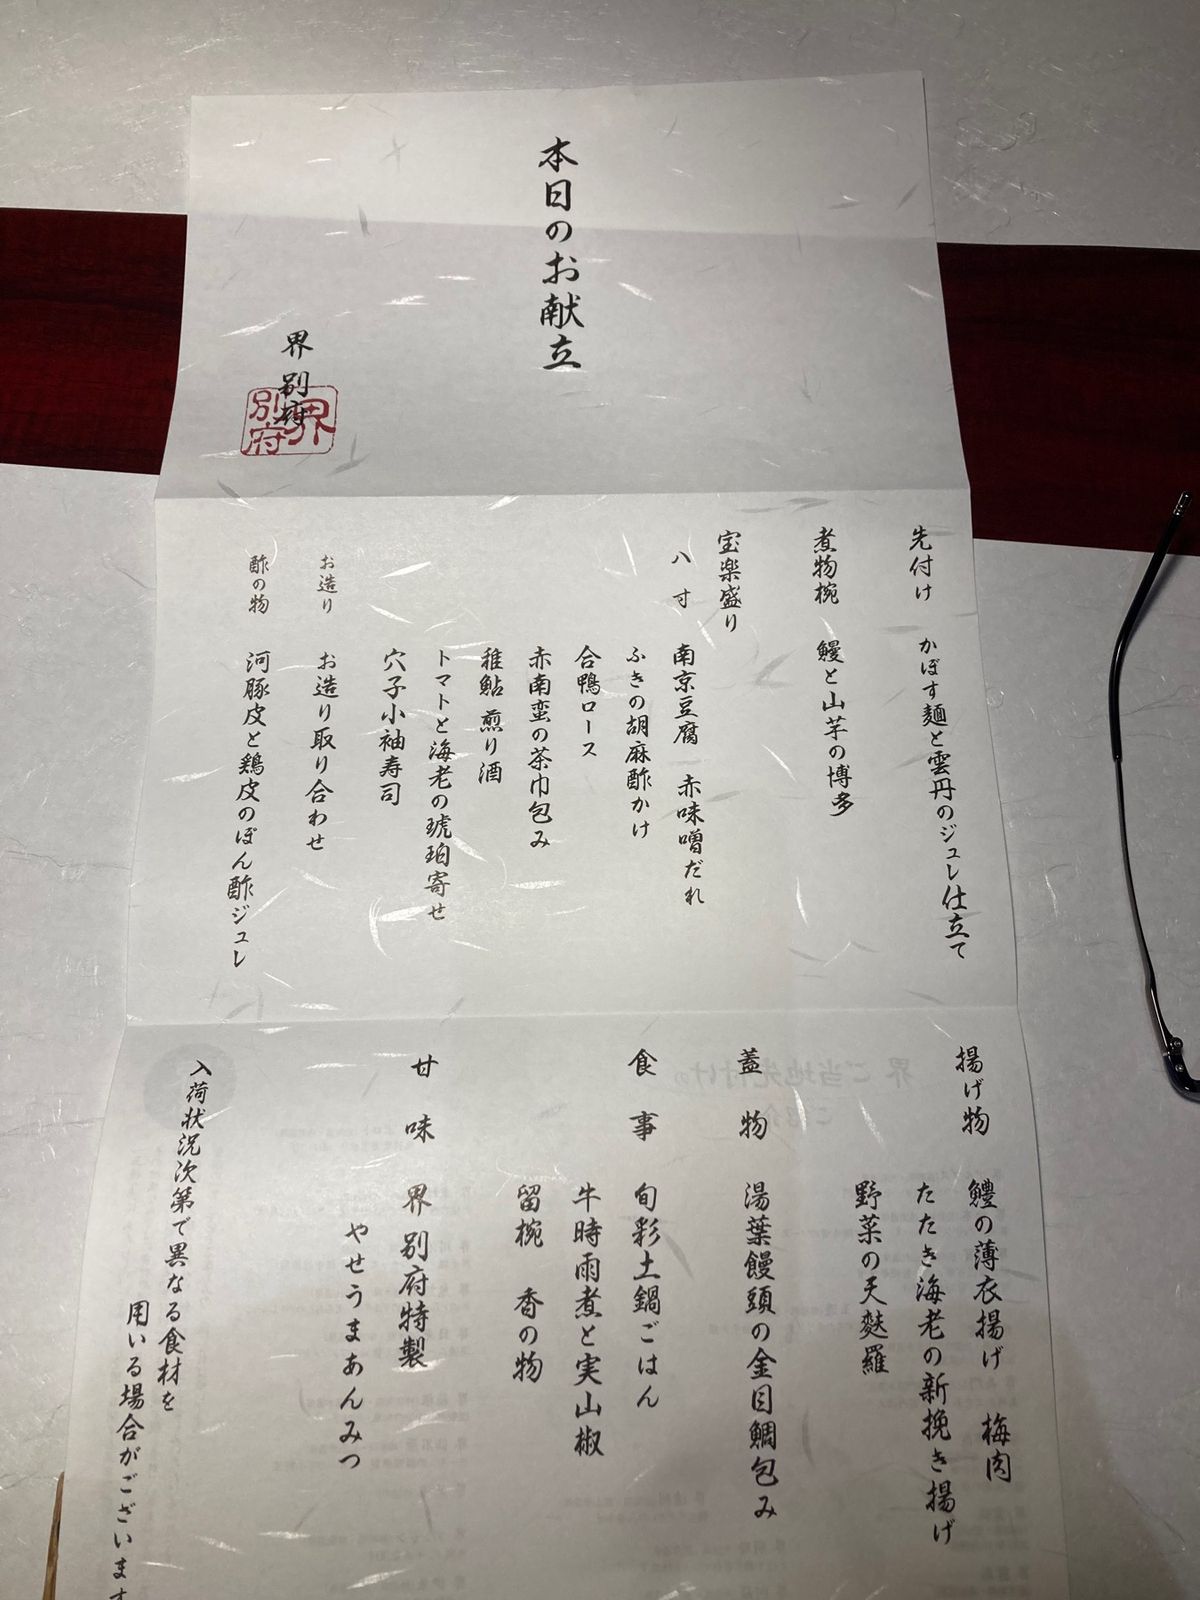 本日のお献立
界 別府
界別府
先付け かぼす麺と雲丹のジュレ仕立て
煮物椀 鰻と山芋の博多
宝楽盛り
八寸 南京豆腐 赤味噌だれ
ふきの胡麻酢かけ
合鴨ロース
赤南蛮の茶巾包み
稚鮎 煎り酒
トマトと海老の琥珀寄せ
穴子小袖寿司
お造り お造り取り合わせ
酢の物 河豚皮と鶏皮のぽん酢ジュレ
揚げ物 鱧の薄衣揚げ 梅肉
たたき海老の新挽き揚げ
野菜の天麩羅
蓋物 湯葉饅頭の金目鯛包み
食事 旬彩土鍋ごはん
牛時雨煮と実山椒
留椀 香の物
甘味 界 別府特製
やせうまあんみつ
入荷状況次第で異なる食材を
用いる場合がございます
界 ご当地先付けの
ご紹介